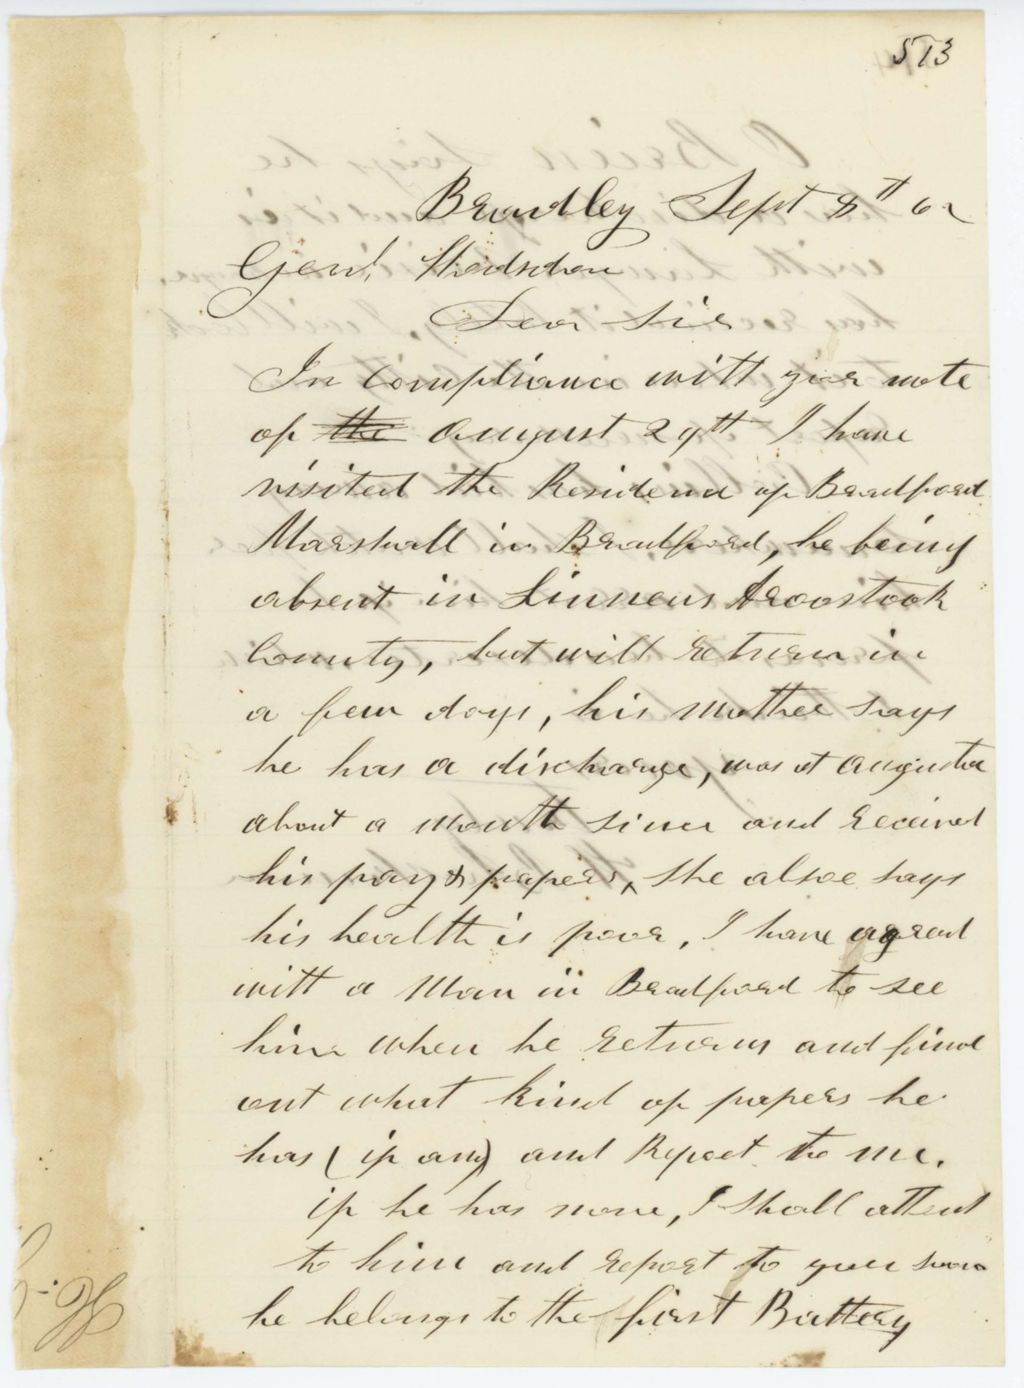 513
Bradley Sept 8th 62
Genl. Hodsdon
Dear Sir
In compliance with your note
of the August 29th I have
visited the Residence of Bradford
Marshall in Bradford, he being
absent in Linneus Aroostook
County, but will return in
a few days, his mother says
he has a discharge, was at Augusta
about a month since and received
his pay & papers, she alsoe says
his health is poor, I have agread
with a Man in Bradford to see
him when he returns and find
out what kind of papers he
has (if any) and Report to me.
if he has none, I shall attend
to him and report to you soon
he belongs to the first Battery